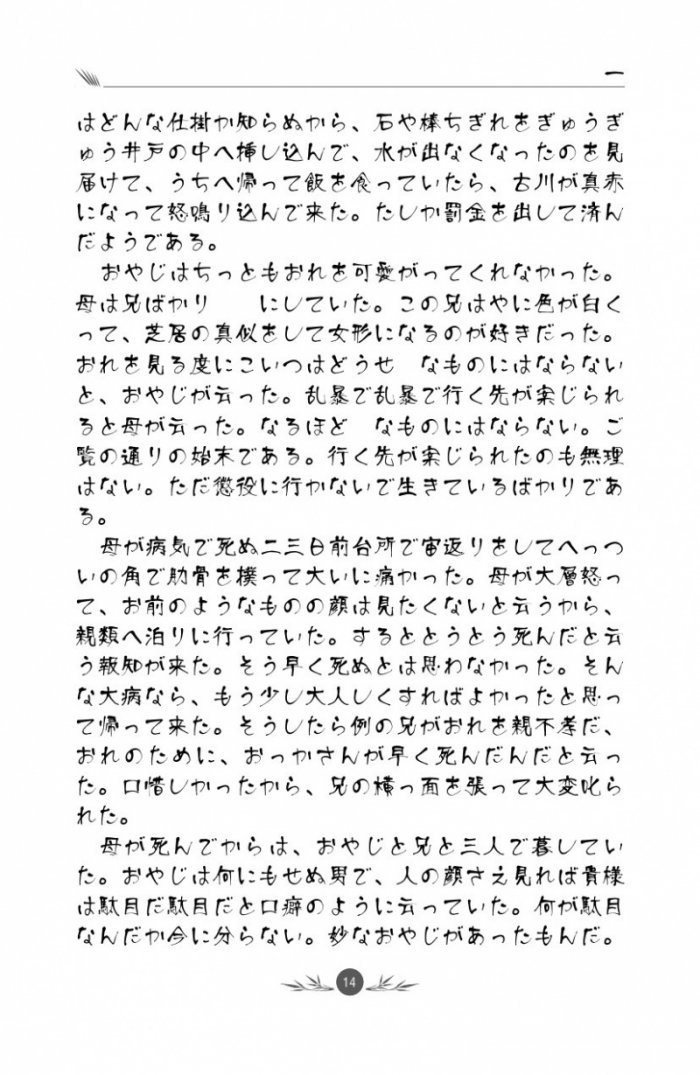 一
はどんな仕掛か知らぬから、石や棒ちぎれをぎゅうぎ
ゅう井戸の中へ挿し込んで、水が出なくなったのを見
届けて、うちへ帰って飯を食っていたら、古川が真赤
になって怒鳴り込んで来た。たしか罰金を出して済ん
だようである。
おやじはちっともおれを可愛がってくれなかった。
母は兄ばかり　　にしていた。この兄はやに色が白く
って、芝居の真似をして女形になるのが好きだった。
おれを見る度にこいつはどうせ　なものにはならない
と、おやじが云った。乱暴で乱暴で行く先が案じられ
ると母が云った。なるほど　なものにはならない。ご
覧の通りの始末である。行く先が案じられたのも無理
はない。ただ懲役に行かないで生きているばかりであ
る。
母が病気で死ぬ二三日前台所で宙返りをしてへっつ
いの角で肋骨を撲って大いに痛かった。母が大層怒っ
て、お前のようなものの顔は見たくないと云うから、
親類へ泊りに行っていた。するととうとう死んだと云
う報知が来た。そう早く死ぬとは思わなかった。そん
な大病なら、もう少し大人しくすればよかったと思っ
て帰って来た。そうしたら例の兄がおれを親不孝だ、
おれのために、おっかさんが早く死んだんだと云っ
た。口惜しかったから、兄の横っ面を張って大変叱ら
れた。
母が死んでからは、おやじと兄と三人で暮してい
た。おやじは何にもせぬ男で、人の顔さえ見れば貴様
は駄目だ駄目だと口癖のように云っていた。何が駄目
なんだか今に分らない。妙なおやじがあったもんだ。
14